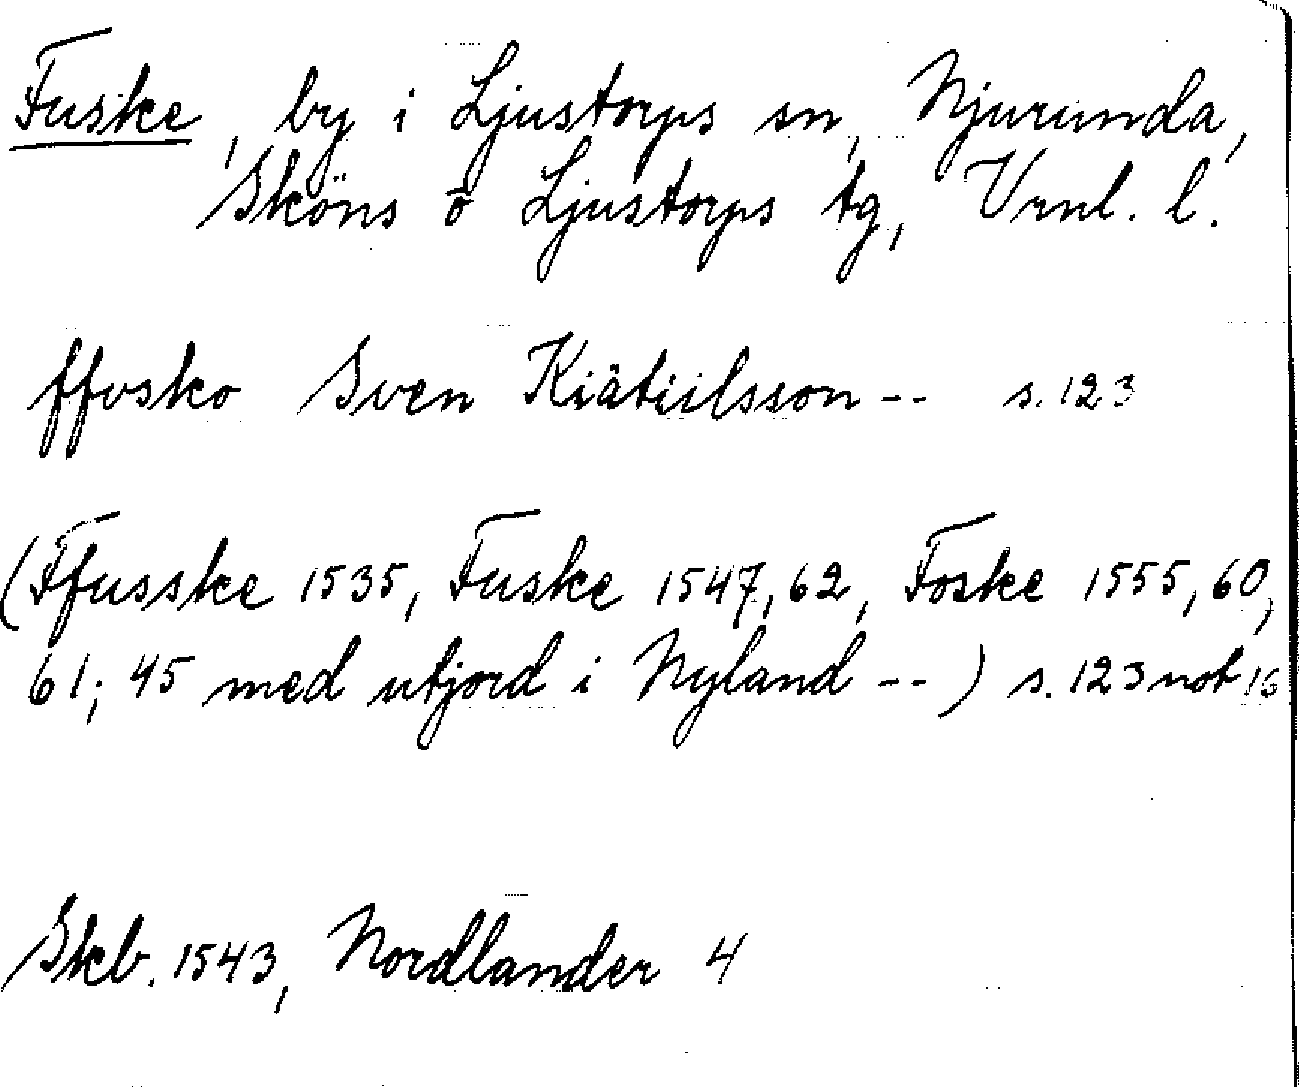 Fuske, by i Ljustorps sn, Njurunda,
Sköns o Ljustorps tg, Vrnl. l.
ffvsko Sven Kiätiilsson -- s. 123
(Ffusske 1535, Fuske 1547, 62, Foske 1555, 60,
61; 45 med utjord i Nyland --) s. 123 not 16
Skb. 1543, Nordlander 4